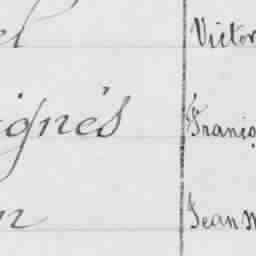 el Victor
ignés Franço
n Jean M